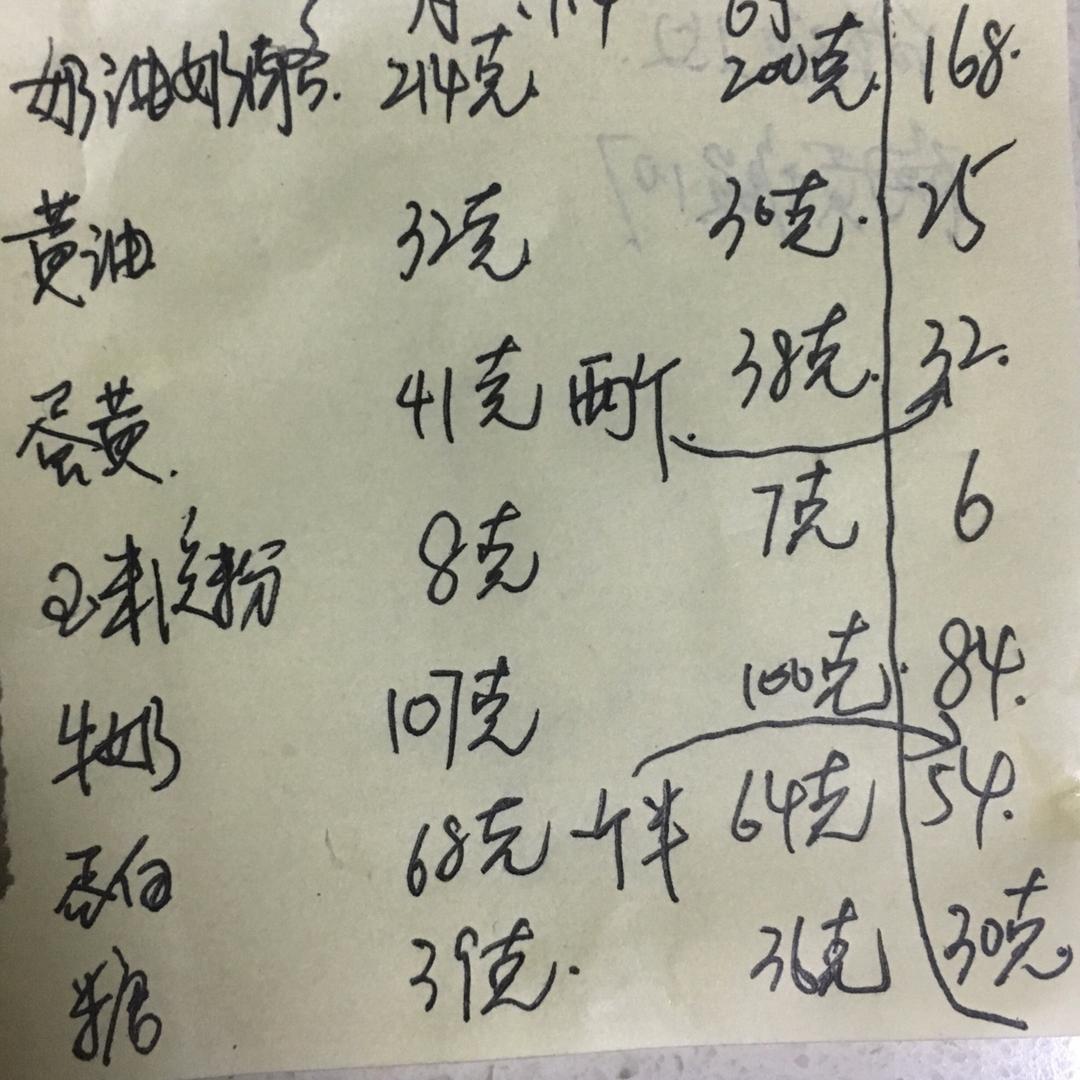 奶油奶酪. 214克. 200克. 168.
黄油 32克 30克. 25
蛋黄. 41克 两个. 38克. 32.
玉米淀粉 8克 7克 6
牛奶 107克 100克. 84.
蛋白 68克 一个半 64克 54.
糖 39克. 36克 30克.